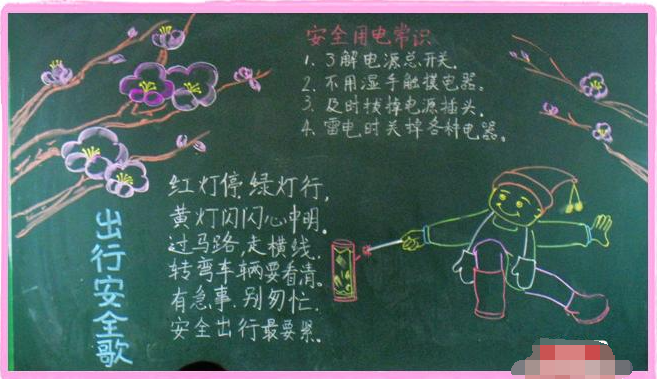 安全用电常识
1. 了解电源总开关.
2. 不用湿手触摸电器。
3. 及时拔掉电源插头.
4. 雷电时关掉各种电器。
出行安全歌
红灯停.绿灯行,
黄灯闪闪心中明.
过马路,走横线.
转弯车辆要看清。
有急事.别匆忙.
安全出行最要紧。